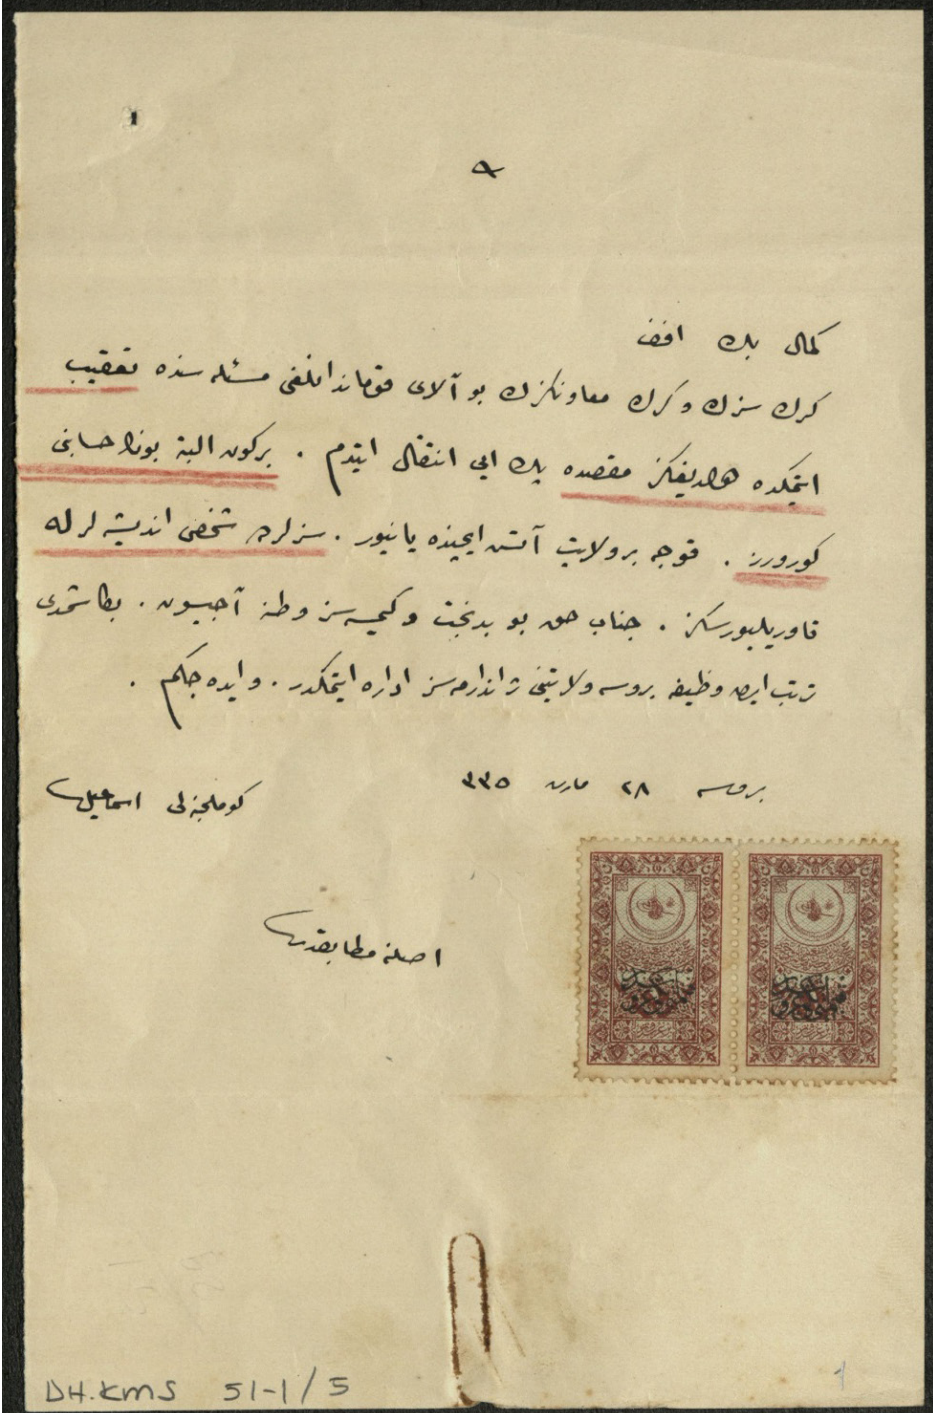 1
كمال بك افندی
كرك سزك و كرك معاونكزك بو آلای قوماندانلغی مسئله سنده تعقیب
ایتمكده اولدیغكز مقصده پك ایی انتقال ایتدم . بركون البته بونك حسابنی
كورورز . قوجه بر ولایت آتش ایچنده یانیور . سزلر شخصی اندیشه لرله
قاوریلیورسكز . جناب حق بو بدبخت و كیمسه سز وطنه آجیسون . بكا شمدی
ترتب ایدن وظیفه بروسه ولایتنی ژاندارمه سز اداره ایتمكدر . و ایده جكم .
بروسه ٢٨ مارت ٣٣٥
كوملجنه لی اسماعیل
اصلنه مطابقدر
DH.KMS 51-1/5
1